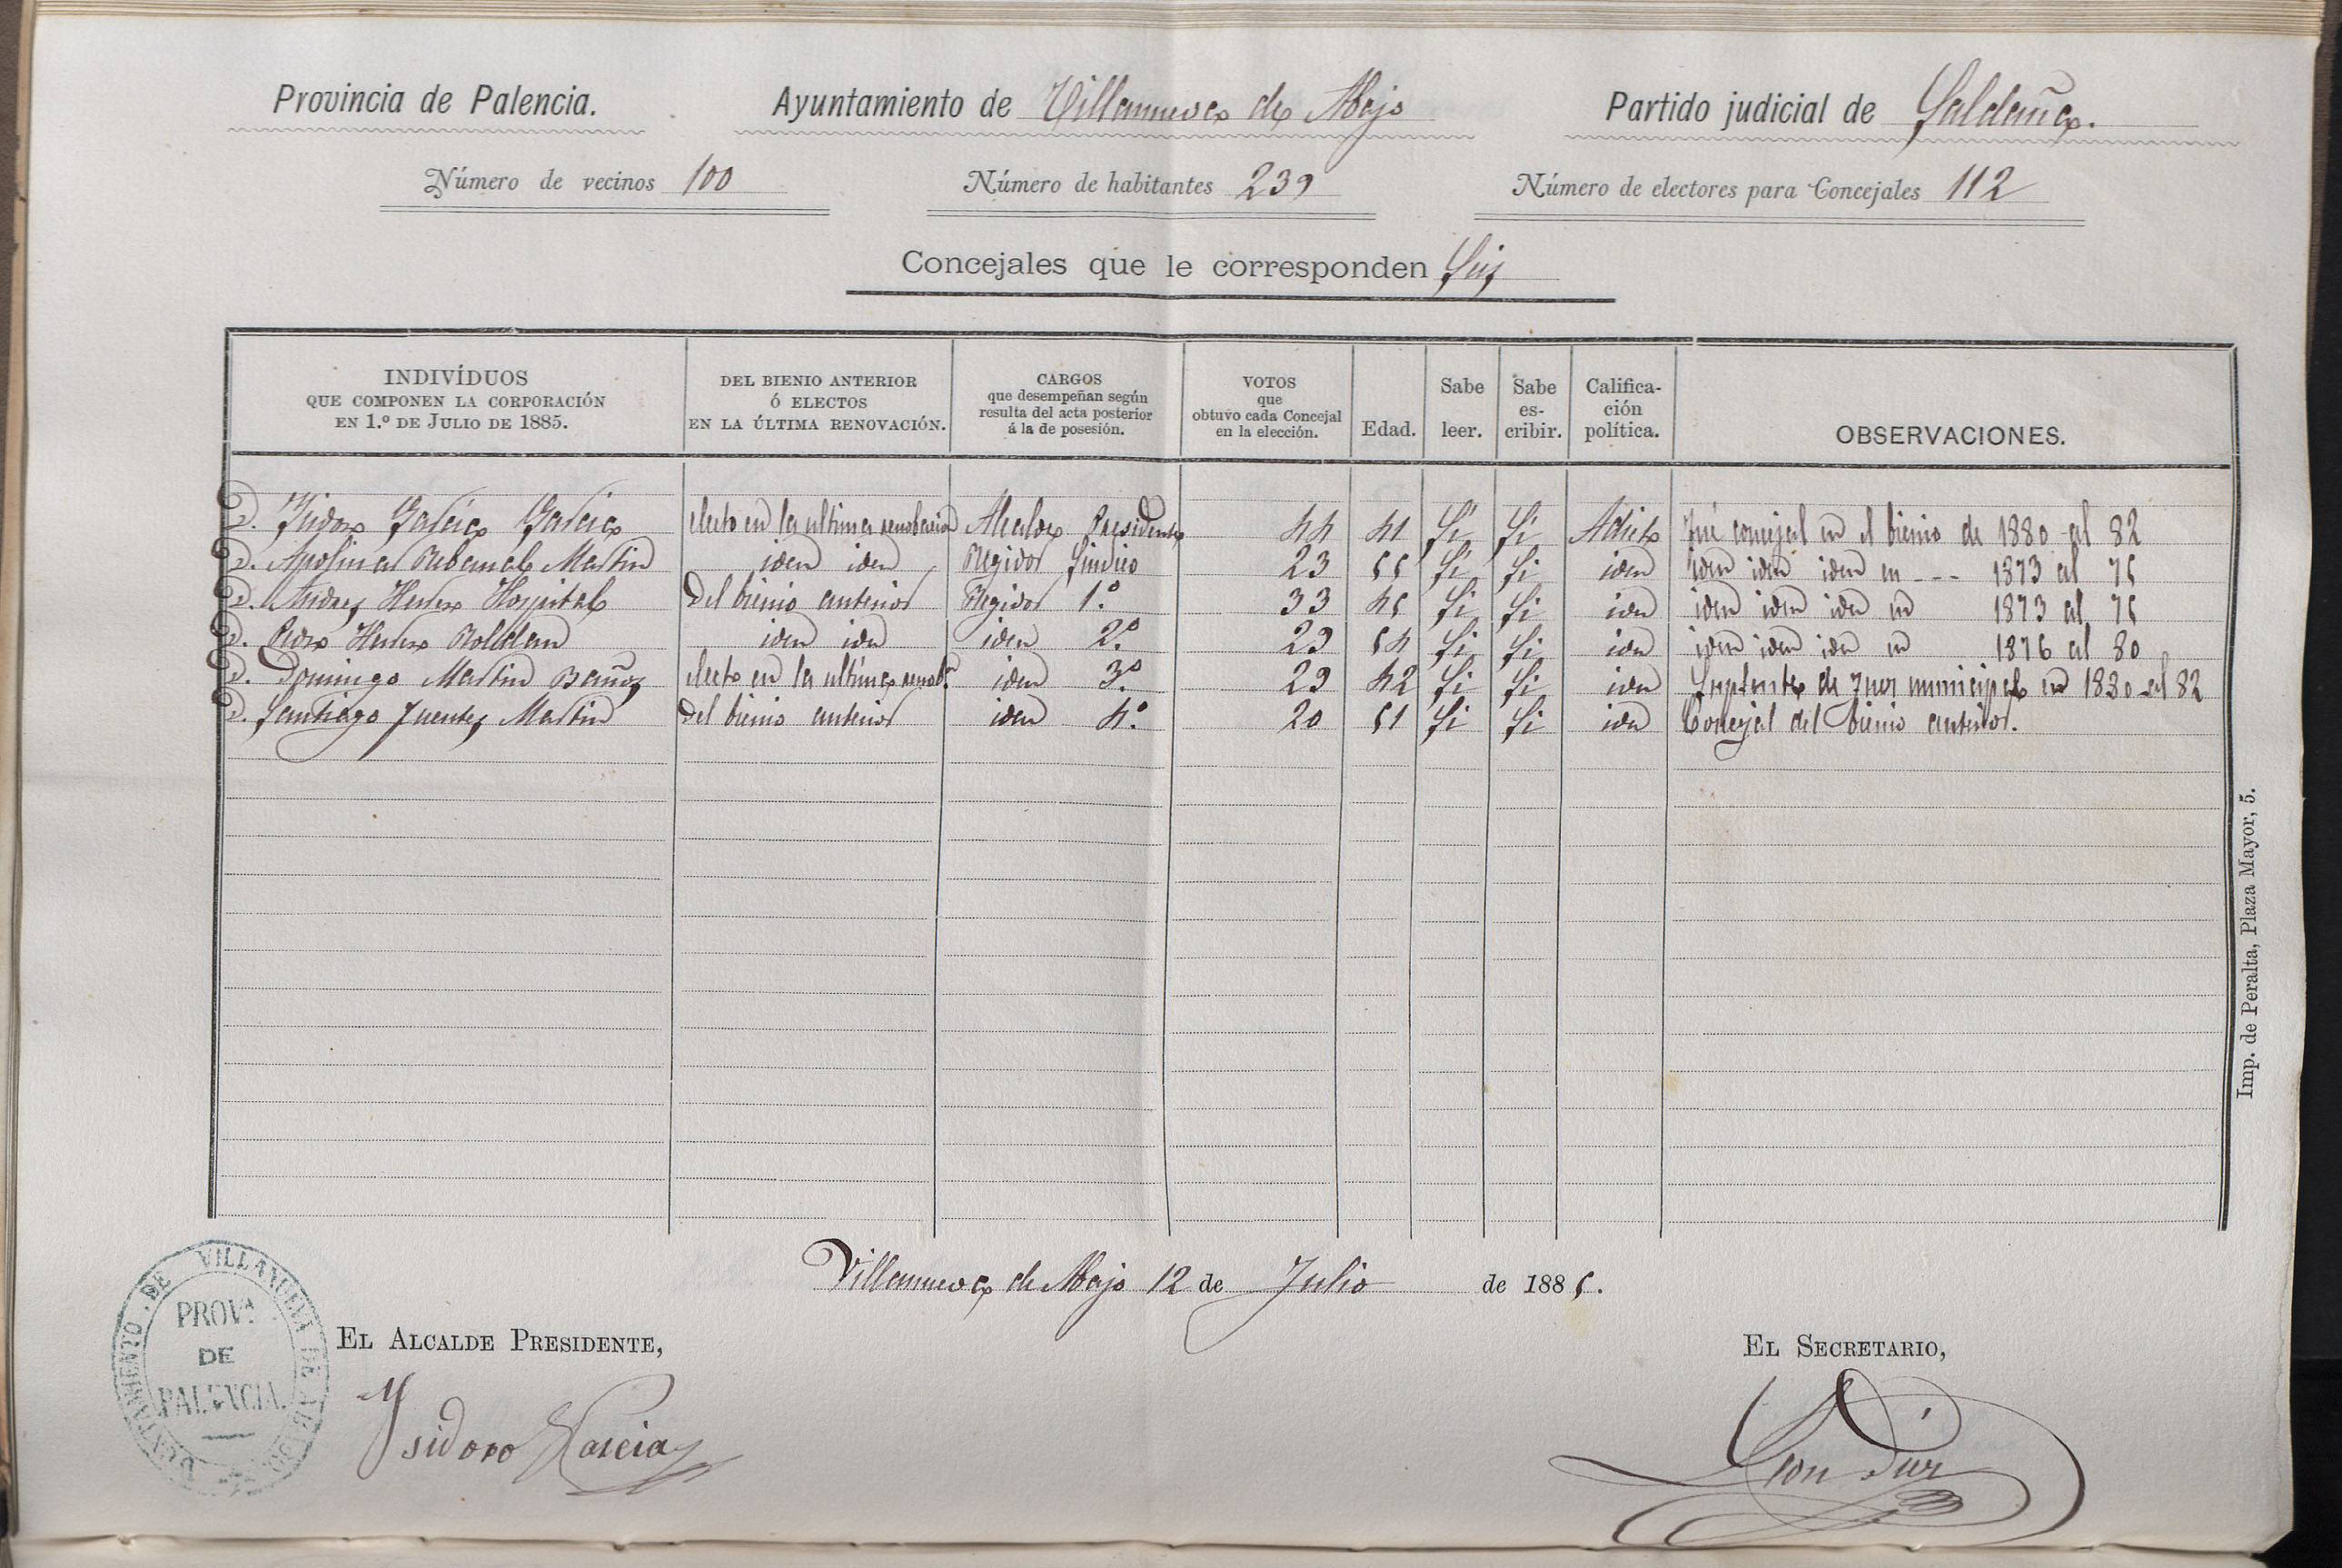 Provincia de Palencia. Ayuntamiento de Villanueva de Abajo Partido judicial de Saldaña.
Número de vecinos 100 Número de habitantes 239 Número de electores para Concejales 112
Concejales que le corresponden Seis
INDIVÍDUOS QUE COMPONEN LA CORPORACIÓN EN 1.º DE JULIO DE 1885. DEL BIENIO ANTERIOR Ó ELECTOS EN LA ÚLTIMA RENOVACIÓN. CARGOS que desempeñan según resulta del acta posterior á la de posesión. VOTOS que obtuvo cada Concejal en la elección. Edad. Sabe leer. Sabe es-cribir. Califica-ción política. OBSERVACIONES.
D. Isidoro García García electo en la ultima renobacion Alcalde Presidente 44 41 Si Si Adicto Fué concejal en el bienio de 1880 al 82
D. Apolinar Rebanal Martin iden iden Regidor Sindico 23 55 Si Si iden iden iden iden en --- 1873 al 75
D. Andres Herrero Hospital del bienio anterior Regidor 1.º 33 45 Si Si iden iden iden iden en 1873 al 75
D. Pedro Herrero Roldan iden iden iden 2.º 29 54 Si Si iden iden iden iden en 1876 al 80
D. Domingo Martin Baños electo en la ultima renob.n iden 3.º 29 42 Si Si iden Suplente de Juez municipal en 1880 al 82
D. Santiago Fuentes Martin del bienio anterior iden 4.º 20 51 Si Si iden Concejal del bienio anterior.
Imp. de Peralta, Plaza Mayor, 5.
Villanueva de Abajo 12 de Julio de 1885.
AYUNTAMIENTO DE VILLANUEVA DE ABAJO
PROV.A
DE
PALENCIA.
EL ALCALDE PRESIDENTE, EL SECRETARIO,
Isidoro Garcia Leon Diez